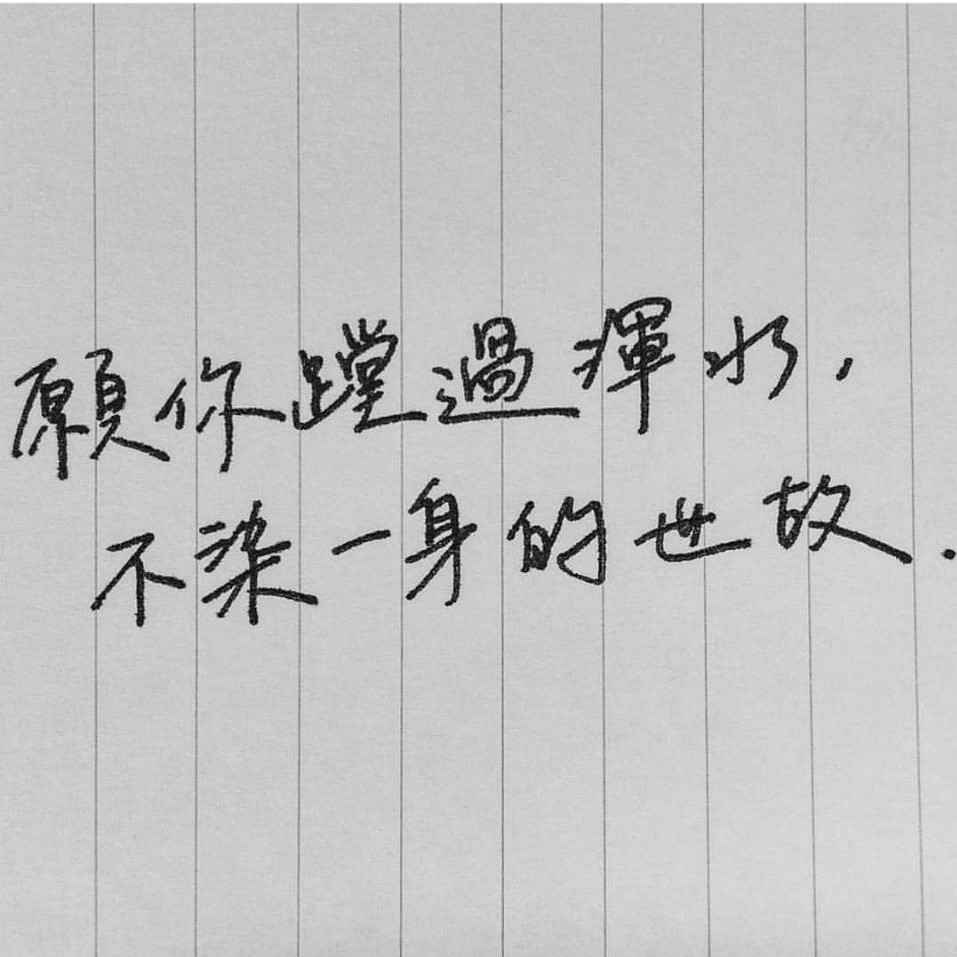 願你蹚過渾水,
不染一身的世故.